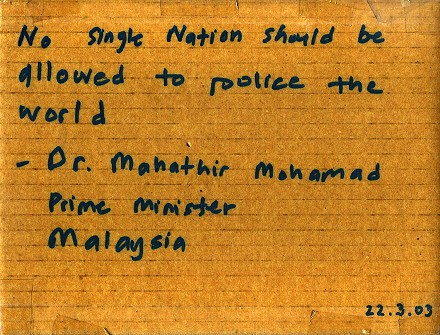 No single Nation should be
allowed to police the
world
- Dr. Mahathir Mohamad
Prime Minister
Malaysia
22.3.03